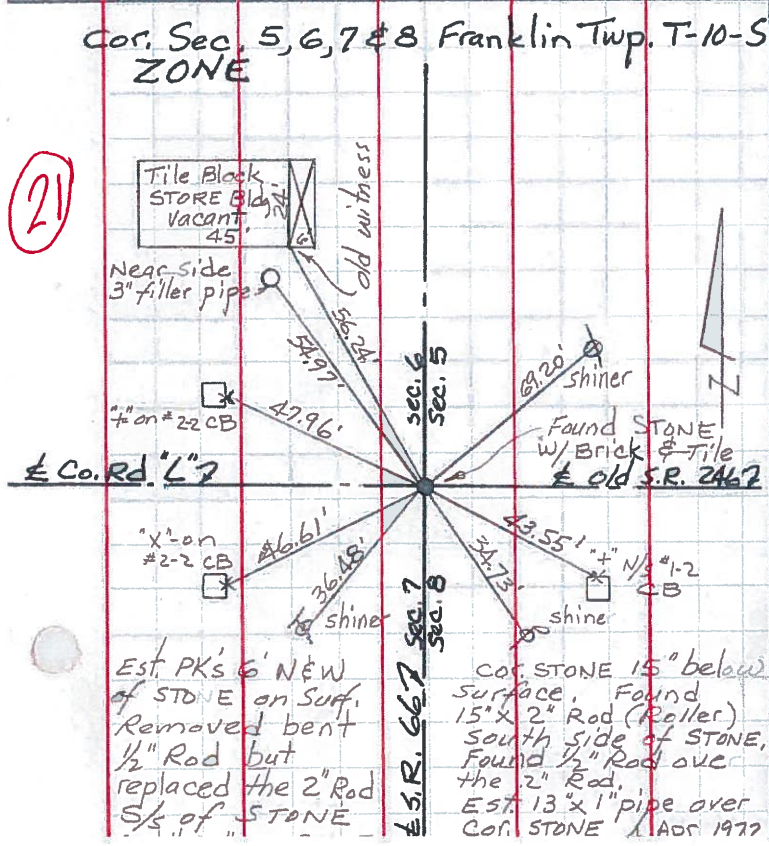 Cor. Sec. 5, 6, 7 & 8 Franklin Twp. T-10-S
ZONE
21
Tile Block
STORE Bldg
Vacant
45'
24'
6'
old witness
Near side
3" filler pipe
56.24'
54.97'
Sec. 6
Sec. 5
69.20'
shiner
N
"+" on #2-2 CB
47.96'
Found STONE
w/ Brick & Tile
℄ Co. Rd. "L"
℄ Old S.R. 246
"X"-on
#2-2 CB
46.61'
36.48'
shiner
Sec. 7
Sec. 8
34.73'
43.55'
"+" N/s #1-2
CB
shine
℄ S.R. 66
Est. PK's 6' N&W
of STONE on Surf.
Removed bent
1/2" Rod but
replaced the 2" Rod
S/s of STONE
Cor. STONE 15" below
Surface. Found
15" x 2" Rod (Roller)
South side of STONE,
Found 1/2" Rod ove
the 2" Rod.
Est. 13" x 1" pipe over
Cor. STONE Apr 1977